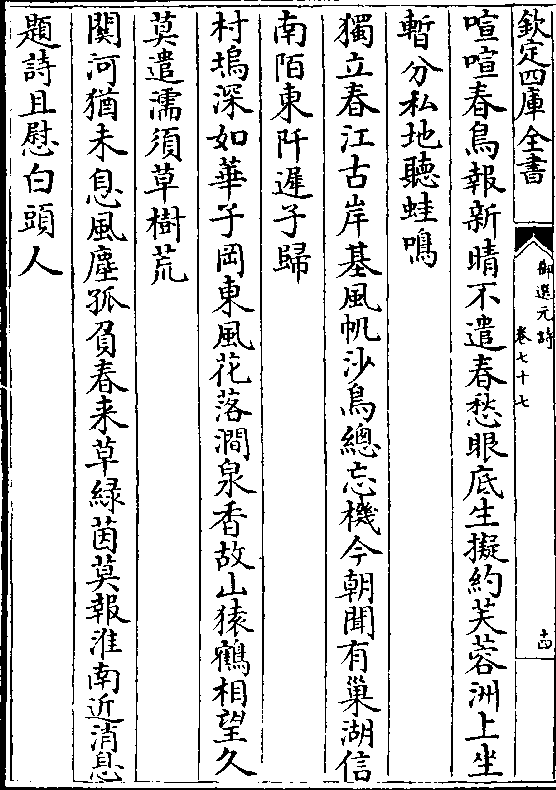 欽定四庫全書
御選元詩
卷七十七
十四
喧喧春鳥報新晴不遣春愁眼底生擬約芙蓉洲上坐
暫分私地聽蛙鳴
獨立春江古岸基風帆沙鳥總忘機今朝聞有巢湖信
南陌東阡遲子歸
村塢深如華子岡東風花落澗泉香故山猿鶴相望久
莫遣濡須草樹荒
關河猶未息風塵孤負春来草緑茵莫報淮南近消息
題詩且慰白頭人